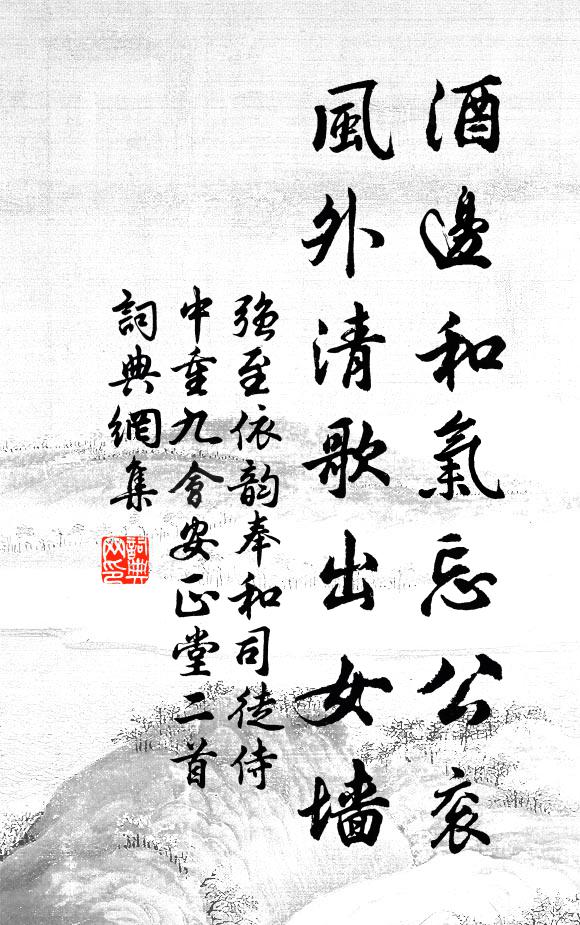 酒邊和氣忘公衮
風外清歌出女墙
強至依韵奉和司徒侍
中重九會安正堂二首
詞典網集
詞典網印